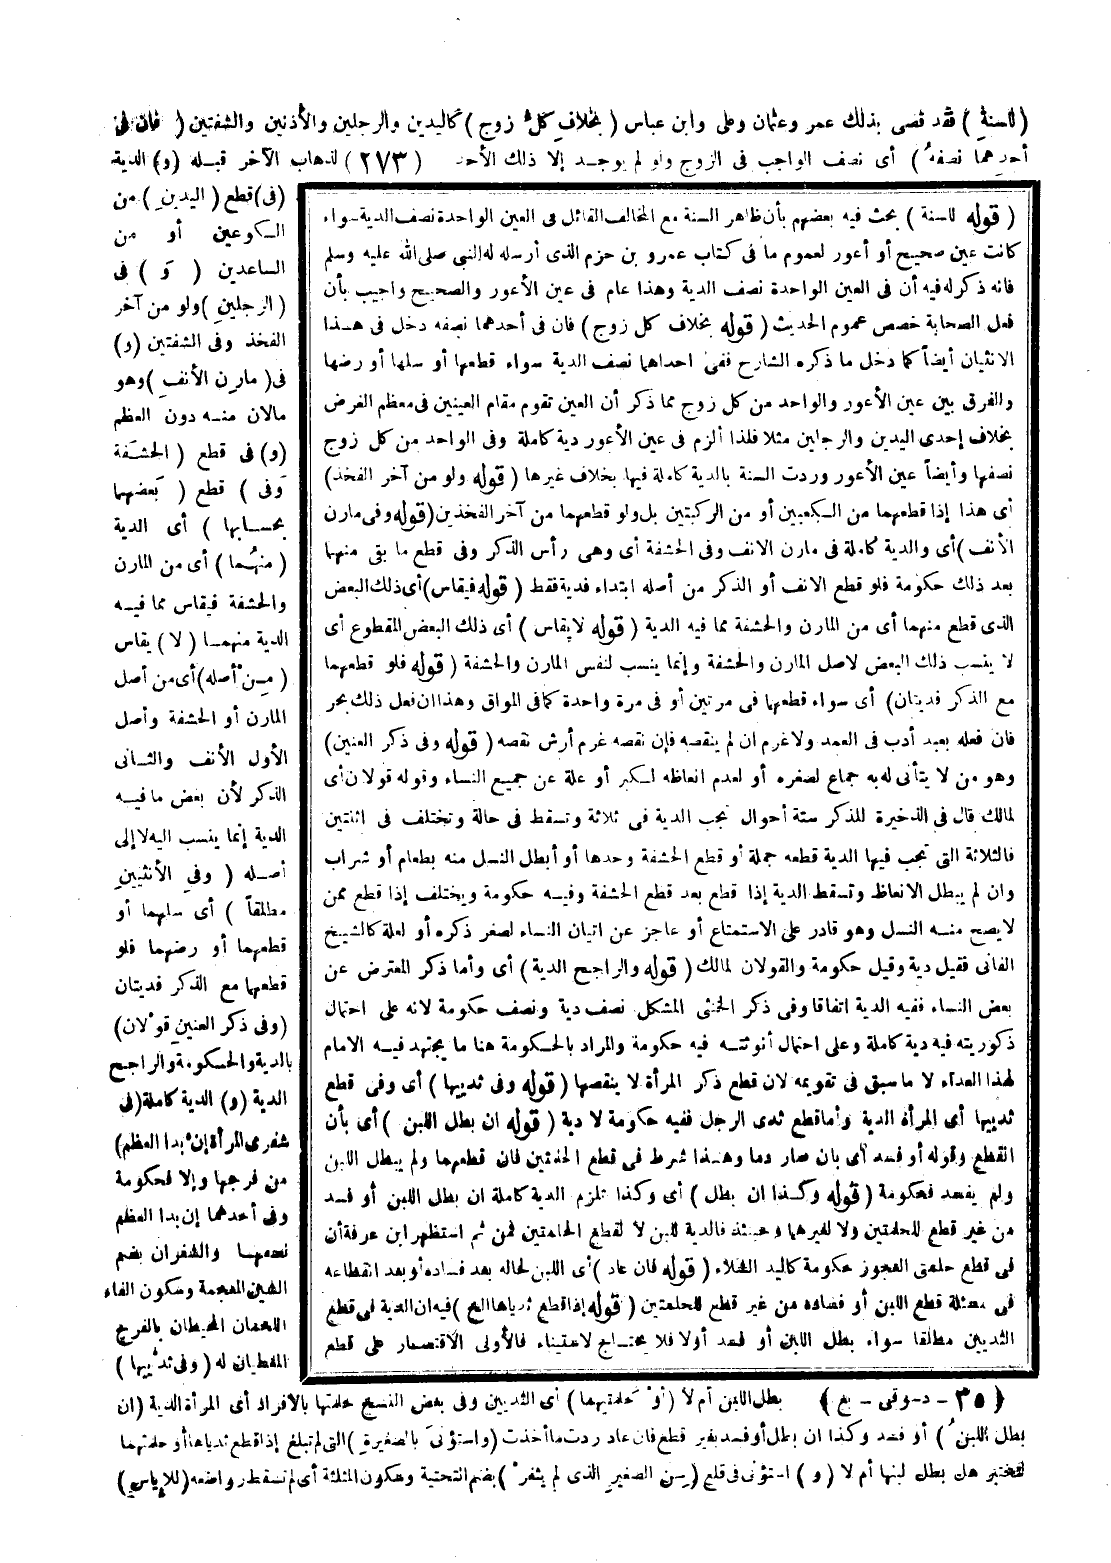 (للسنة) فقد قضى بذلك عمر وعثمان وعلى وابن عباس (بخلاف كل زوج) كاليدين والرجلين والأذنين والشفتين (فان فى
أحدهما نصفه) أى نصف الواجب فى الزوج ولو لم يوجد إلا ذلك الأحد (٢٧٣) لذهاب الآخر قبله (و) الدية
(فى) قطع (اليدين) من
الكوعين أو من
الساعدين (و) فى
(الرجلين) ولو من آخر
الفخذ وفى الشفتين (و)
فى (مارن الأنف) وهو
مالان منه دون العظم
(و) فى قطع (الحشفة
وفى) قطع (بعضهما
بحسابها) أى الدية
(منهما) أى من المارن
والحشفة فيقاس مما فيه
الدية منهما (لا) يقاس
(من أصله) أى من أصل
المارن أو الحشفة وأصل
الأول الأنف والثانى
الذكر لأن بعض ما فيه
الدية إنما ينسب اليه لا إلى
أصله (وفى الأنثيين
مطلقاً) أى سلهما أو
قطعهما أو رضهما فلو
قطعهما مع الذكر فديتان
(وفى ذكر العنين قولان)
بالدية والحكومة والراجح
الدية (و) الدية كاملة (فى
شفرى المرأة إن بدا العظم)
من فرجها وإلا فحكومة
وفى أحدهما إن بدا العظم
نصفها والشفران بضم
الشين المعجمة وسكون الفاء
اللحمان المحيطان بالفرج
المغطيان له (وفى ثدييها)
(قوله للسنة) بحث فيه بعضهم بأن ظاهر السنة مع المخالف القائل فى العين الواحدة نصف الدية سواء
كانت عين صحيح أو أعور لعموم ما فى كتاب عمرو بن حزم الذى أرسله له النبى صلى الله عليه وسلم
فانه ذكر له فيه أن فى العين الواحدة نصف الدية وهذا عام فى عين الأعور والصحيح واجيب بأن
فعل الصحابة خصص عموم الحديث (قوله بخلاف كل زوج) فان فى أحدهما نصفه دخل فى هذا
الانثيان أيضاً كما دخل ما ذكره الشارح ففى احداهما نصف الدية سواء قطعها أو سلها أو رضها
والفرق بين عين الأعور والواحد من كل زوج مما ذكر أن العين تقوم مقام العينين فى معظم الغرض
بخلاف إحدى اليدين والرجلين مثلا فلذا ألزم فى عين الأعور دية كاملة وفى الواحد من كل زوج
نصفها وأيضاً عين الأعور وردت السنة بالدية كاملة فيها بخلاف غيرها (قوله ولو من آخر الفخذ)
أى هذا إذا قطعهما من الكعبين أو من الركبتين بل ولو قطعهما من آخر الفخذين (قوله وفى مارن
الأنف) أى والدية كاملة فى مارن الانف وفى الحشفة أى وهى رأس الذكر وفى قطع ما بقى منهما
بعد ذلك حكومة فلو قطع الانف أو الذكر من أصله ابتداء فدية فقط (قوله فيقاس) أى ذلك البعض
الذى قطع منهما أى من المارن والحشفة مما فيه الدية (قوله لا يقاس) أى ذلك البعض المقطوع أى
لا ينسب ذلك البعض لاصل المارن والحشفة وإنما ينسب لنفس المارن والحشفة (قوله فلو قطعهما
مع الذكر فديتان) أى سواء قطعهما فى مرتين أو فى مرة واحدة كما فى المواق وهذا ان فعل ذلك بحر
فان فعله بعبد أدب فى العمد ولا غرم ان لم ينقصه فإن نقصه غرم أرش نقصه (قوله وفى ذكر العنين)
وهو من لا يتأتى له به جماع لصغره أو لعدم انعاظه لكبر أو علة عن جميع النساء وقوله قولان أى
لمالك قال فى الذخيرة للذكر ستة أحوال تجب الدية فى ثلاثة وتسقط فى حالة وتختلف فى اثنتين
فالثلاثة التى تجب فيها الدية قطعه جملة أو قطع الحشفة وحدها أو أبطل النسل منه بطعام أو شراب
وان لم يبطل الانعاظ وتسقط الدية إذا قطع بعد قطع الحشفة وفيه حكومة ويختلف إذا قطع ممن
لا يصح منه النسل وهو قادر على الاستمتاع أو عاجز عن اتيان النساء لصغر ذكره أو لعلة كالشيخ
الفانى فقيل دية وقيل حكومة والقولان لمالك (قوله والراجح الدية) أى وأما ذكر المعترض عن
بعض النساء ففيه الدية اتفاقا وفى ذكر الخنثى المشكل نصف دية ونصف حكومة لانه على احتمال
ذكوريته فيه دية كاملة وعلى احتمال أنوثته فيه حكومة والمراد بالحكومة هنا ما يجتهد فيه الامام
لهذا العداء لا ما سبق فى تقويمه لان قطع ذكر المرأة لا ينقصها (قوله وفى ثدييها) أى وفى قطع
ثدييها أى المرأة الدية وأما قطع ثدى الرجل ففيه حكومة لا دية (قوله ان بطل اللبن) أى بأن
القطع وقوله أو فسد أى بان صار دما وهذا شرط فى قطع الحلمتين فان قطعهما ولم يبطل اللبن
ولم يفسد فحكومة (قوله وكذا ان بطل) أى وكذا تلزم الدية كاملة ان بطل اللبن أو فسد
من غير قطع للحلمتين ولا لغيرها وحينئذ فالدية للبن لا لقطع الحلمتين فمن ثم استظهر ابن عرفة أن
فى قطع حلمتى العجوز حكومة كاليد الشلاء (قوله فان عاد) أى اللبن لحاله بعد فساده أو بعد انقطاعه
فى مسئلة قطع اللبن أو فساده من غير قطع للحلمتين (قوله إذا قطع ثدياها الخ) فيه ان الدية فى قطع
الثديين مطلقا سواء بطل اللبن أو فسد أولا فلا يحتاج لاستيناء فالأولى الاقتصار على قطع
(٣٥ - دسوقى - بع) بطل اللبن أم لا (أو حلمتيهما) أى الثديين وفى بعض النسخ حلمتها بالافراد أى المرأة الدية (ان
بطل اللبن) أو فسد وكذا ان بطل أو فسد بغير قطع فان عاد ردت ما أخذت (واستؤنى بالصغيرة) التى لم تبلغ إذا قطع ثدياها أو حلمتهما
لتختبر هل بطل لبنها أم لا (و) استؤنى فى قلع (سن الصغير الذى لم يثغر) بضم التحتية وسكون المثلثة أى لم تسقط رواضعه (للإياس)